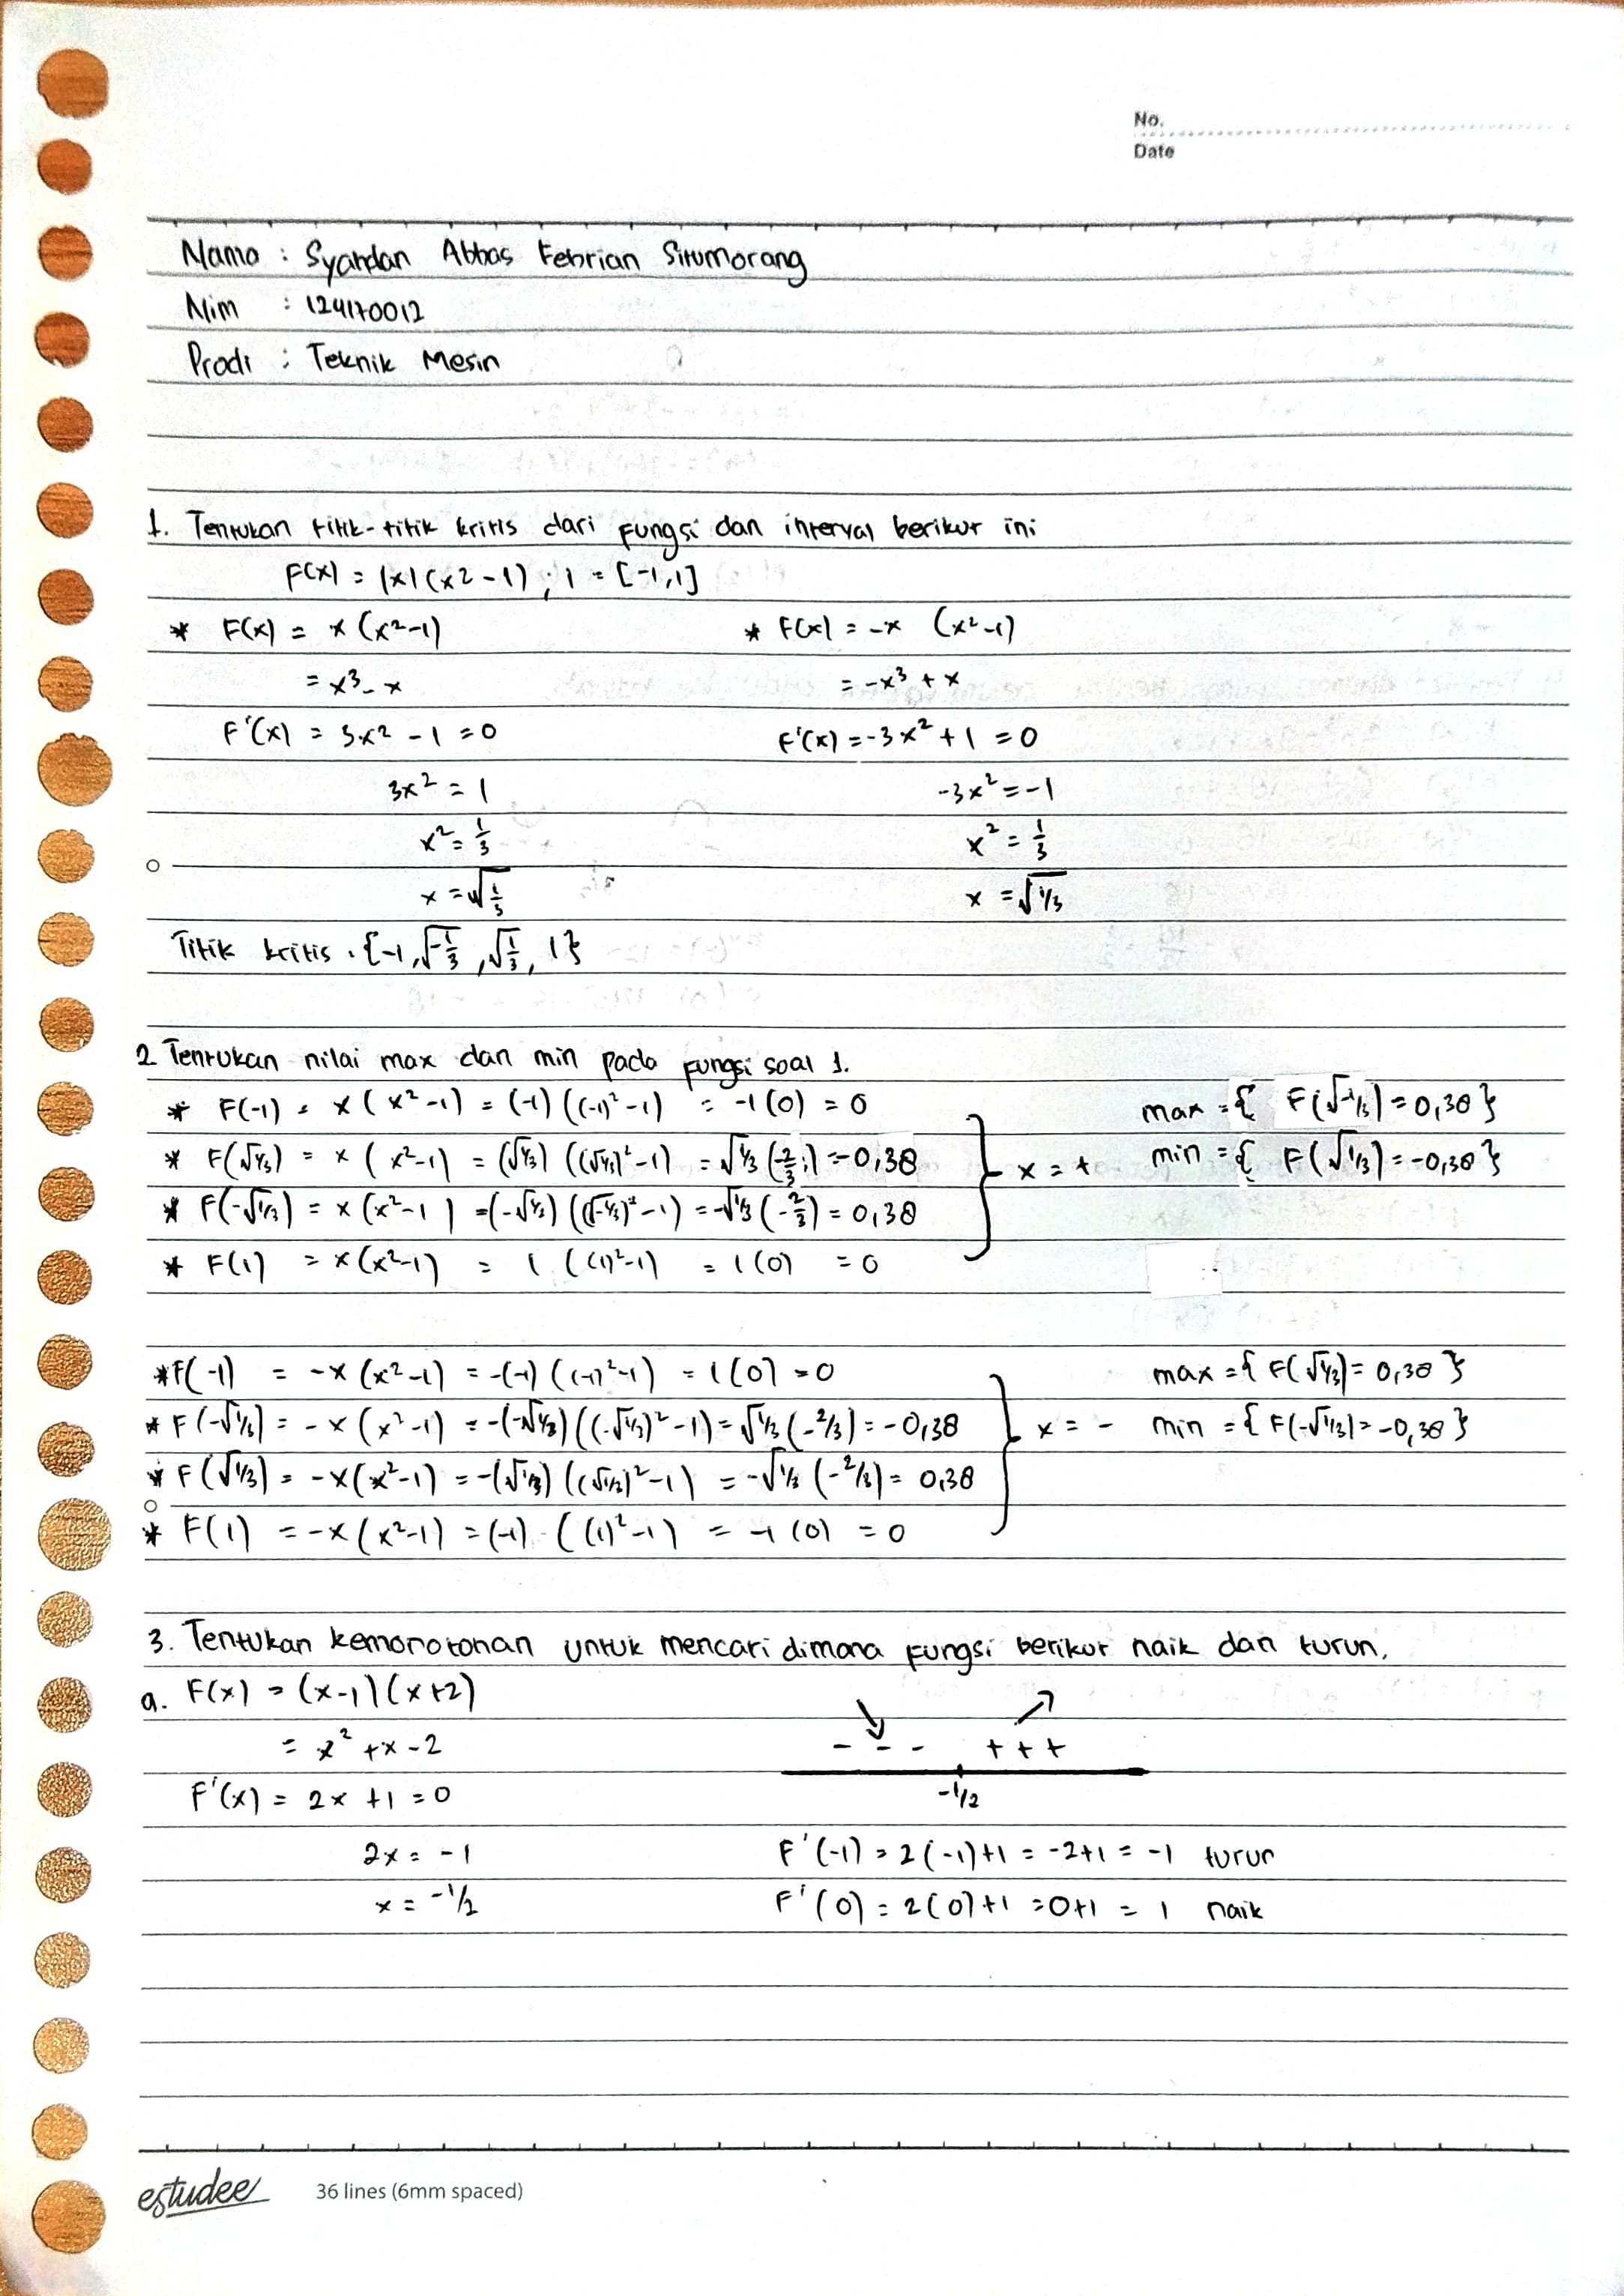 No.
Date
Nama : Syahdan Abbas Febrian Situmorang
Nim : 124170012
Prodi : Teknik Mesin
1. Tentukan titik-titik kritis dari fungsi dan interval berikut ini
F(x) = |x|(x2-1) ; i = [-1,1]
* F(x) = x (x²-1) * F(x) = -x (x²-1)
= x³ - x = -x³ + x
F'(x) = 3x² - 1 = 0 F'(x) = -3x² + 1 = 0
3x² = 1 -3x² = -1
x² = 1/3 x² = 1/3
x = √1/3 x = √1/3
Titik kritis : {-1, √-1/3, √1/3, 1}
2 Tentukan nilai max dan min pada fungsi soal 1.
* F(-1) = x (x²-1) = (-1) ((-1)²-1) = -1(0) = 0 max = { F(√-1/3) = 0,38 }
* F(√1/3) = x (x²-1) = (√1/3) ((√1/3)²-1) = √1/3 (-2/3) = -0,38 x = + min = { F(√1/3) = -0,38 }
* F(-√1/3) = x (x²-1) = (-√1/3) ((√-1/3)²-1) = -√1/3 (-2/3) = 0,38
* F(1) = x (x²-1) = 1 ((1)²-1) = 1(0) = 0
* F(-1) = -x (x²-1) = -(-1) ((-1)²-1) = 1(0) = 0 max = { F(√1/3) = 0,38 }
* F(-√1/3) = -x (x²-1) = -(-√1/3) ((-√1/3)²-1) = √1/3 (-2/3) = -0,38 x = - min = { F(-√1/3) = -0,38 }
* F(√1/3) = -x (x²-1) = -(√1/3) ((√1/3)²-1) = -√1/3 (-2/3) = 0,38
* F(1) = -x (x²-1) = (-1) ((1)²-1) = -1(0) = 0
3. Tentukan kemonotonan untuk mencari dimana fungsi berikut naik dan turun.
a. F(x) = (x-1)(x+2)
= x² + x - 2 - - - + + +
F'(x) = 2x + 1 = 0 -1/2
2x = -1 F'(-1) = 2(-1)+1 = -2+1 = -1 turun
x = -1/2 F'(0) = 2(0)+1 = 0+1 = 1 naik
estudee 36 lines (6mm spaced)